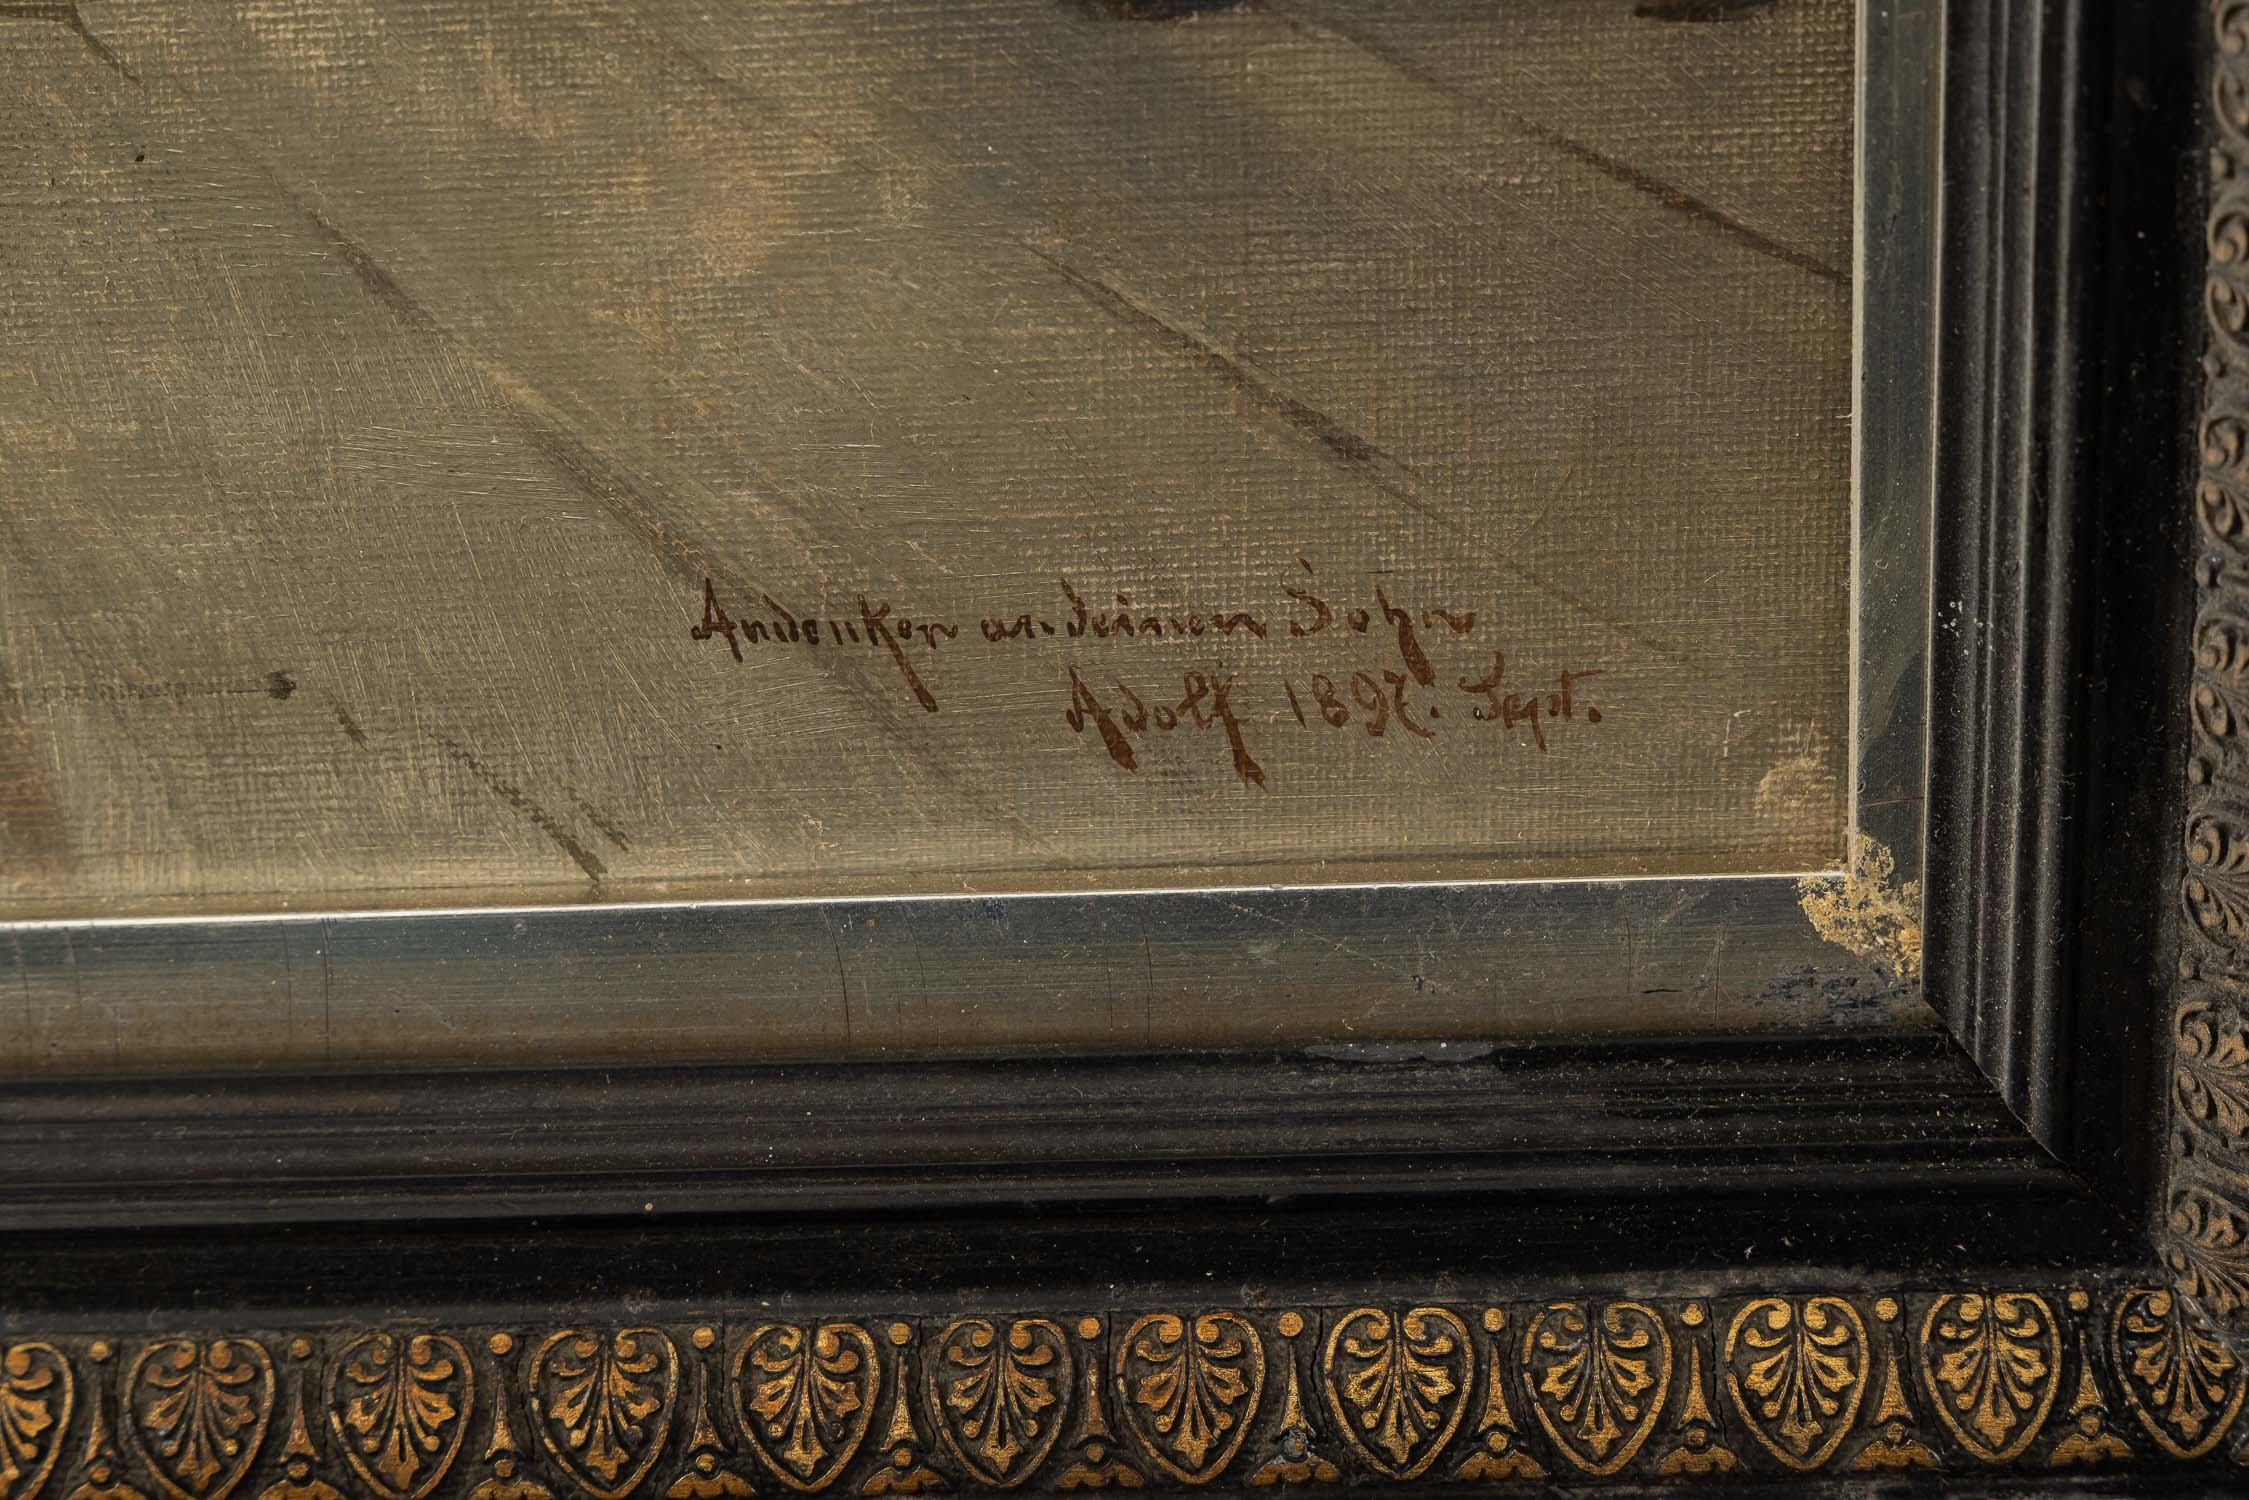 Andenken an deinen Sohn
Adolf 1897. Sept.